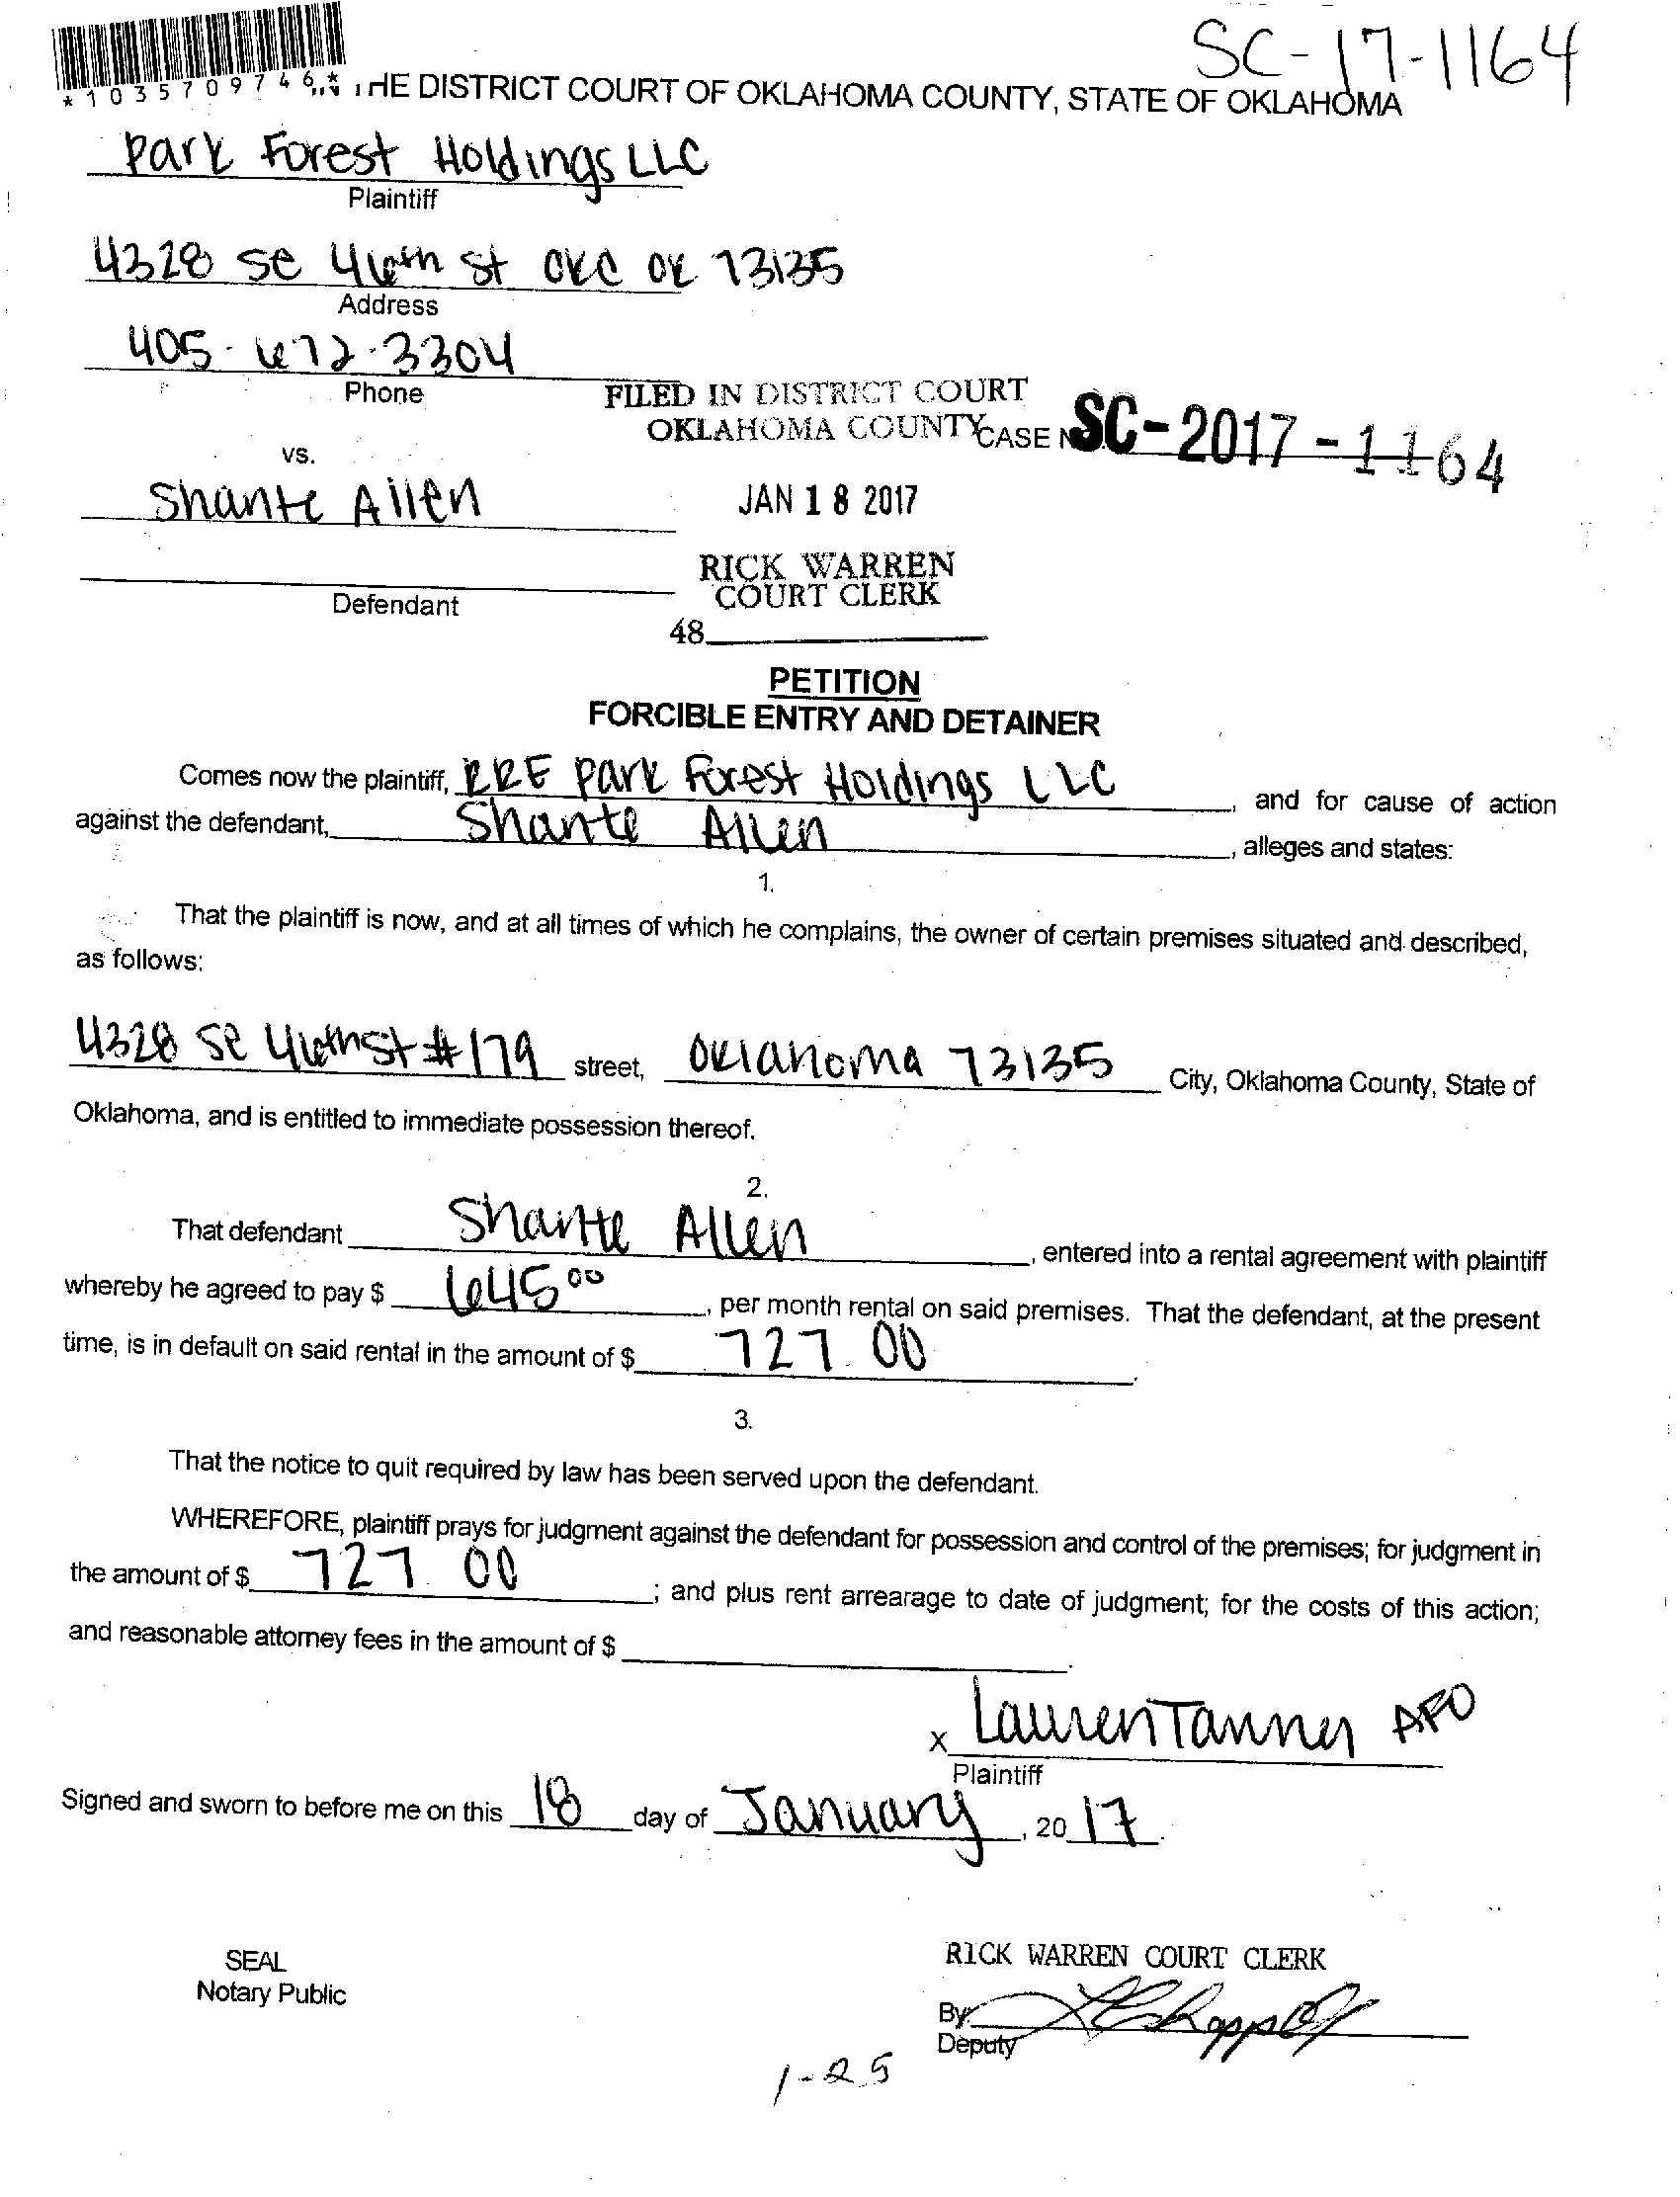 SC-17-1164
*1035709746*
THE DISTRICT COURT OF OKLAHOMA COUNTY, STATE OF OKLAHOMA
Park Forest Holdings LLC
Plaintiff
4328 SE 46th St OKC OK 73135
Address
405-672-3304
Phone
FILED IN DISTRICT COURT
OKLAHOMA COUNTY
CASE N SC-2017-1164
vs.
Shante Allen
JAN 18 2017
RICK WARREN
COURT CLERK
Defendant
48
PETITION
FORCIBLE ENTRY AND DETAINER
Comes now the plaintiff, RRE Park Forest Holdings LLC, and for cause of action
against the defendant, Shante Allen, alleges and states:
1.
That the plaintiff is now, and at all times of which he complains, the owner of certain premises situated and described,
as follows:
4328 SE 46th St #179 street, Oklahoma 73135 City, Oklahoma County, State of
Oklahoma, and is entitled to immediate possession thereof.
2.
That defendant Shante Allen, entered into a rental agreement with plaintiff
whereby he agreed to pay $ 645 00, per month rental on said premises. That the defendant, at the present
time, is in default on said rental in the amount of $ 727.00.
3.
That the notice to quit required by law has been served upon the defendant.
WHEREFORE, plaintiff prays for judgment against the defendant for possession and control of the premises; for judgment in
the amount of $ 727.00; and plus rent arrearage to date of judgment; for the costs of this action;
and reasonable attorney fees in the amount of $
X Lauren Tanner APO
Plaintiff
Signed and sworn to before me on this 18 day of January, 2017.
SEAL
Notary Public
RICK WARREN COURT CLERK
By
Deputy
1-25